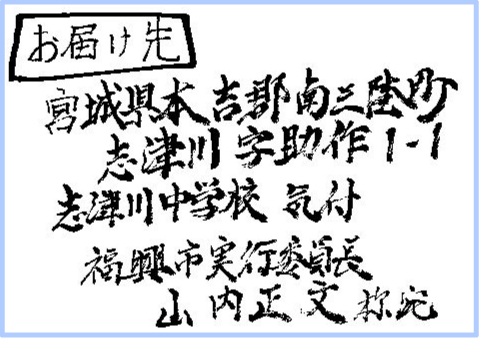 お届け先
宮城県本吉郡南三陸町
志津川字助作1-1
志津川中学校 気付
福興市実行委員長
山内正文 様宛